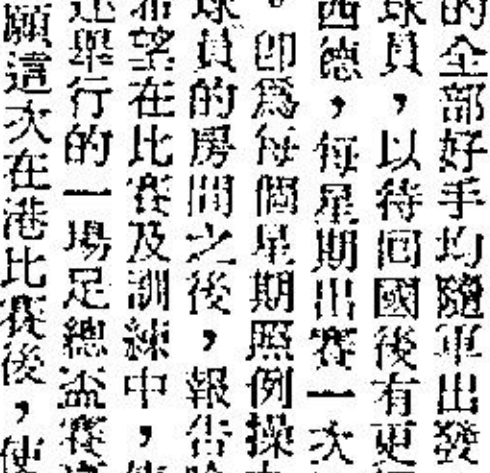 的全部好手均隨軍出發
球員，以待回國後有更
西德，每星期出賽一次
。卽爲每個星期照例操
球員的房間之後，報告
希望在比賽及訓練中，
舉行的一場足總盃賽
願這次在港比賽後，使